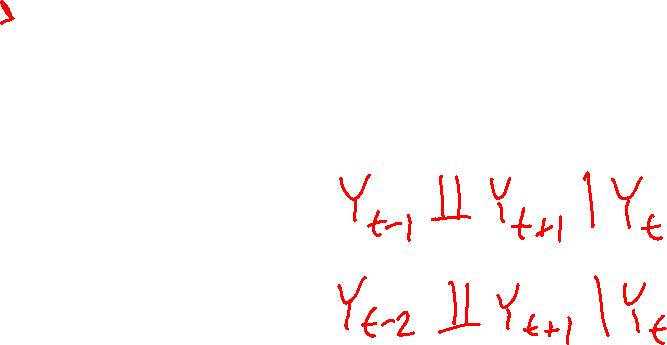 Y_{t-1} ⫫ Y_{t+1} | Y_t
Y_{t-2} ⫫ Y_{t+1} | Y_t